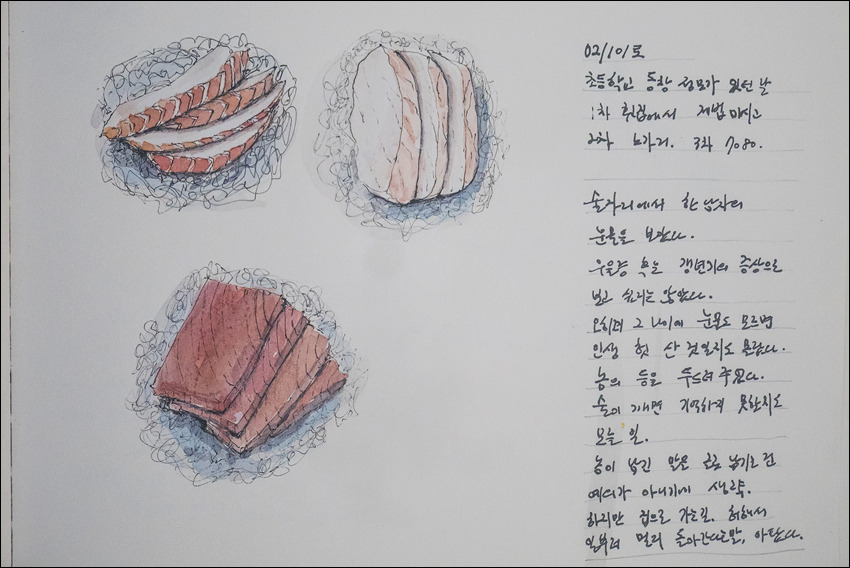 02/10/토
초등학교 동창 정모가 있던 날
1차 횟집에서 제법 마시고
2차 노가리. 3차 7080.
술자리에서 한 남자의
눈물을 보았다.
우울증 혹은 갱년기의 증상으로
보고 싶지는 않았다.
오히려 그 나이에 눈물도 모르면
인생 헛 산 것일지도 모른다.
놈의 등을 두드려 주었다.
술이 깨면 기억하지 못할지도
모를 일.
놈이 남긴 말을 글로 남기는 건
예의가 아니기에 생략.
하지만 집으로 가는길. 허해서
일부러 멀리 돌아간다는말, 아팠다.